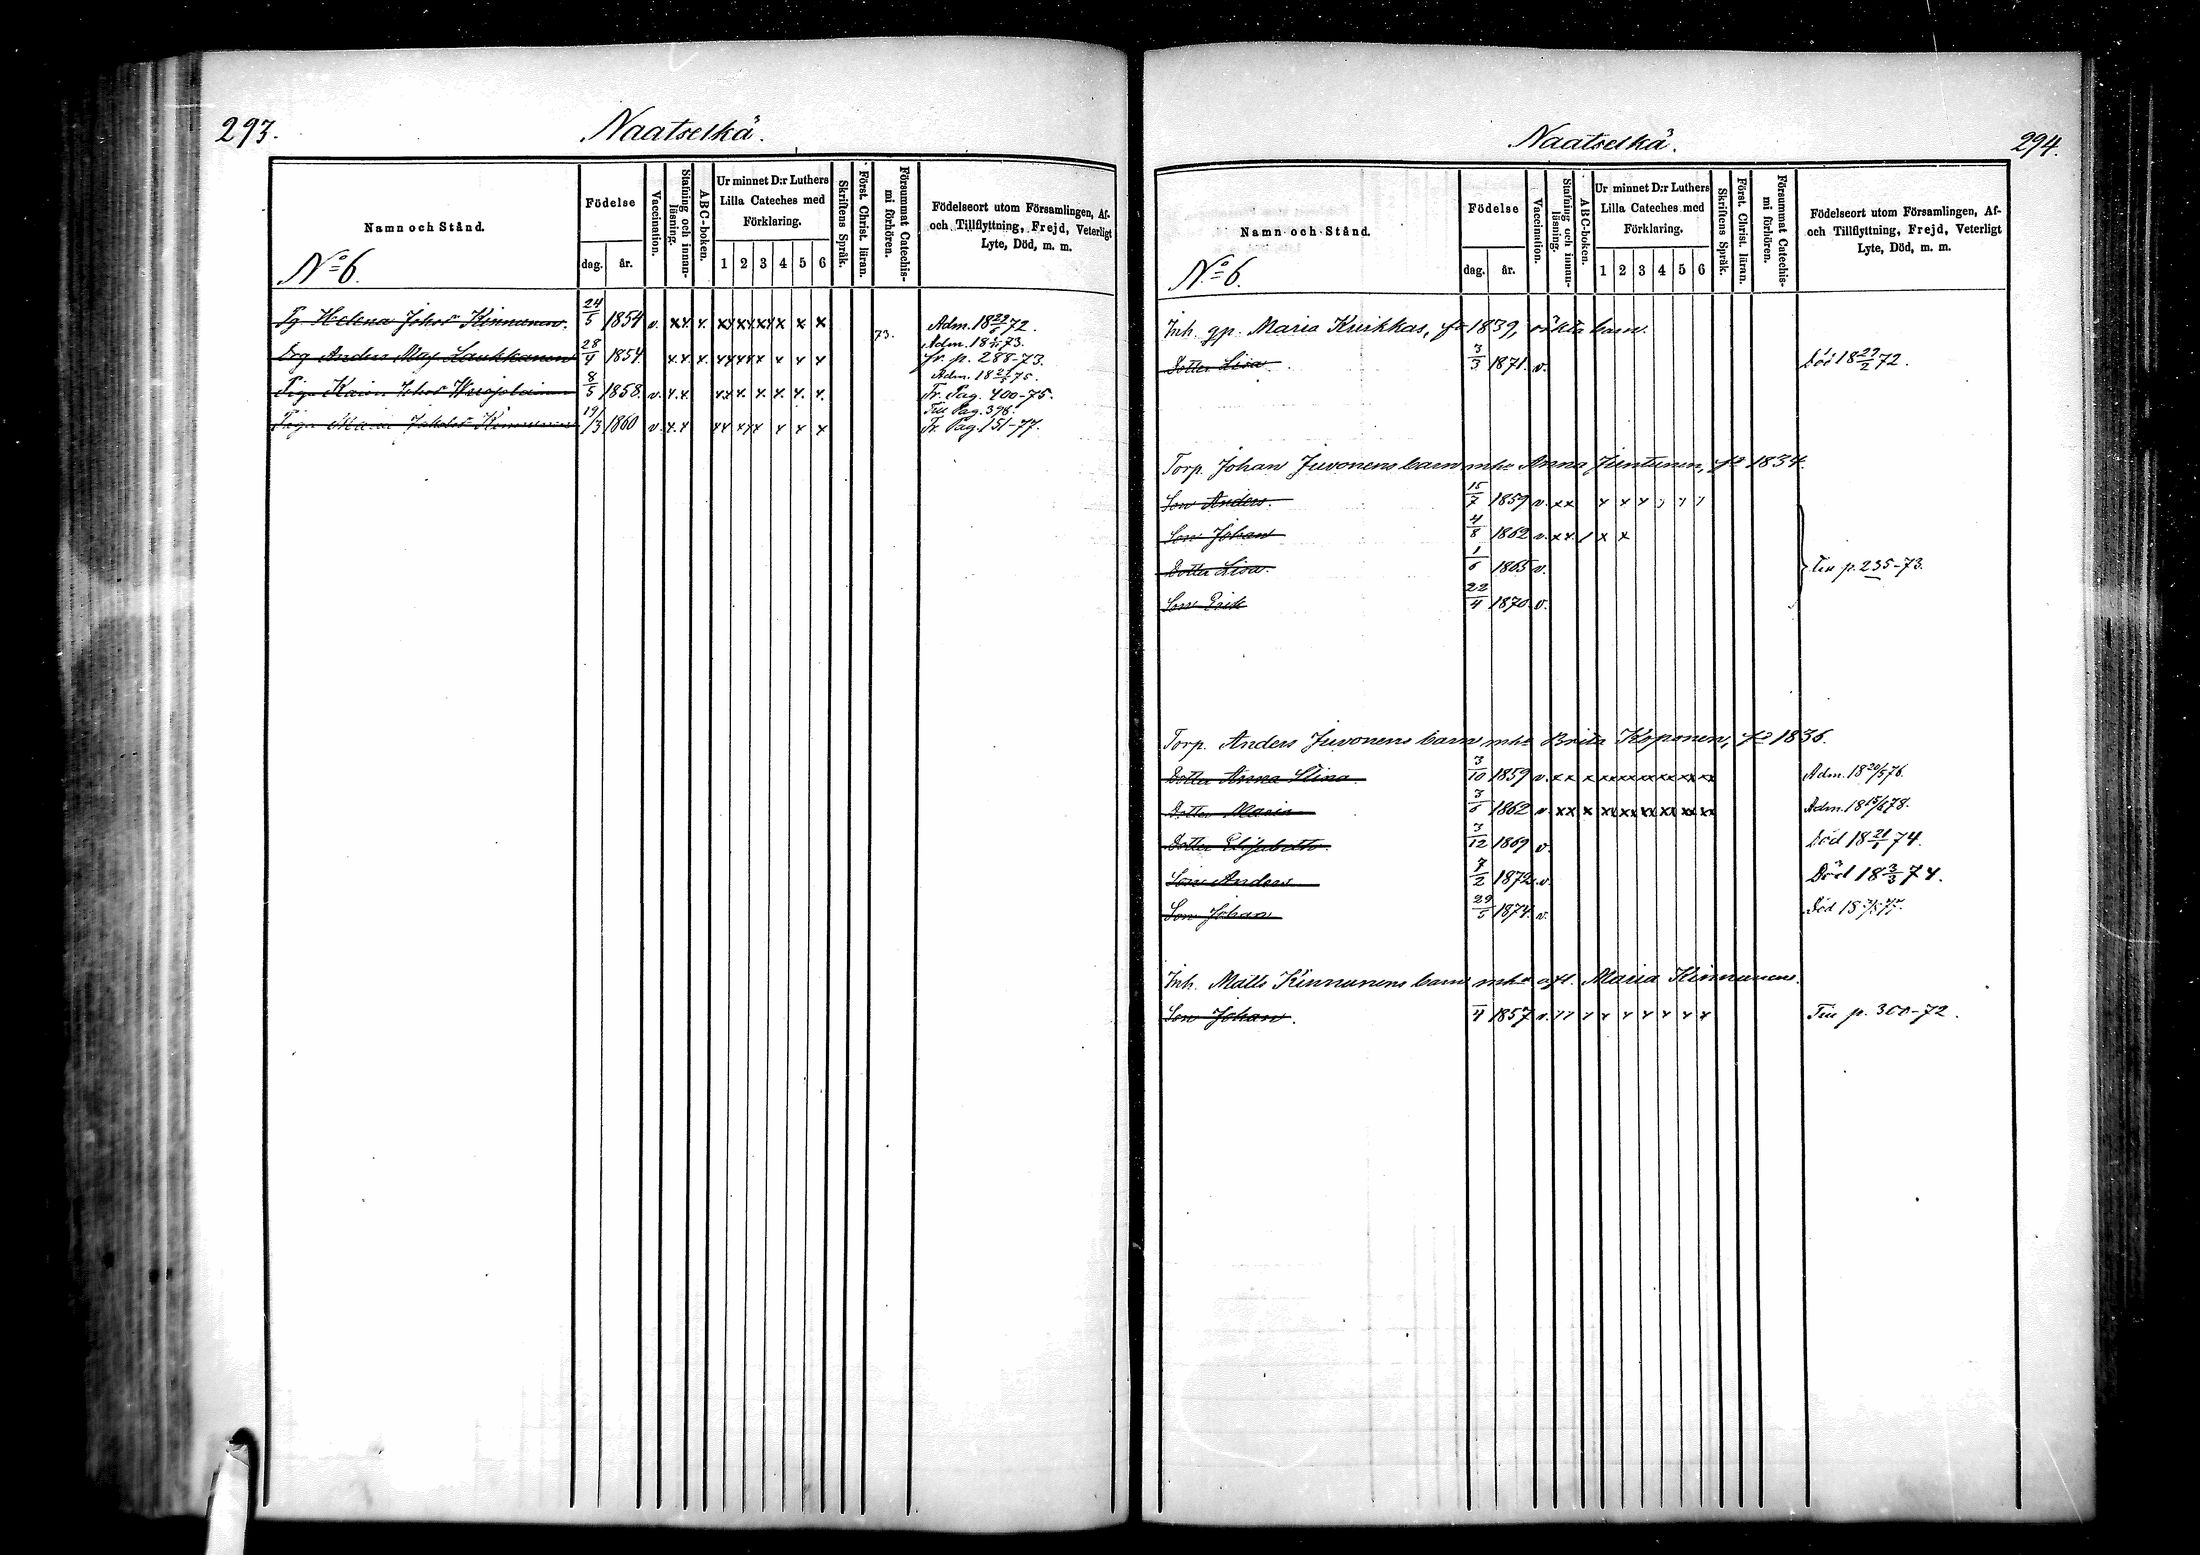 293.
Naatselkä.
Namn och Stånd.
Födelse
dag.
år.
Vaccination.
Stafning och innanläsning.
ABC-boken.
Ur minnet D:r Luthers
Lilla Cateches med
Förklaring.
1 2 3 4 5 6
Skriftens Språk.
Först. Christ. läran.
Försummat Catechismi förhören.
Födelseort utom Församlingen, Af-
och Tillflyttning, Frejd, Veterligt
Lyte, Död, m. m.
No 6.
Pg Helena Johsdr Kinnunen. 24/5 1854 v. x x x x x x Adm. 18 72.
Drg Anders Laukkanen 28/4 1854 73. Adm. 18 73.
fr. p. 288-73.
Piga Karin Johsdr 8/5 1858. v. Adm. 18 75.
Fr. Pag. 400-75.
Till Pag. 398.
Piga Maria Kinnunen 19/3 1860 v. Fr. Pag. 151-77.
Naatselkä.
294.
Namn och Stånd.
Födelse
dag.
år.
Vaccination.
Stafning och innanläsning.
ABC-boken.
Ur minnet D:r Luthers
Lilla Cateches med
Förklaring.
1 2 3 4 5 6
Skriftens Språk.
Först. Christ. läran.
Försummat Catechismi förhören.
Födelseort utom Församlingen, Af-
och Tillflyttning, Frejd, Veterligt
Lyte, Död, m. m.
No 6.
Inh. gp. Maria Kurkkas, fd 1839, oäkta barn.
Dotter Lisa 3/3 1871. v. Död 18 72.
Torp. Johan Juvonens barn mha Anna Juntunen, fd 1834.
Son Anders. 15/7 1859 v. x x
Son Johan 4/8 1862 v. x x / x x
Dotter Lisa. 1/6 1865 v. Till p. 235-73.
Son Erik 22/4 1870. v.
Torp. Anders Juvonens barn mha Brita Kopponen, fd 1836.
Dotter Anna Stina. 3/10 1859 v. x x x xx xx xx xx xx xx Adm. 18 20/5 76.
Dotter Maria 3/6 1862 v. xx x xx xx xx xx xx xx Adm. 18 78.
Dotter Elisabeth. 3/12 1869 v. Död 18 74.
Son Anders 7/2 1872. v. Död 18 3/3 74.
Son Johan 29/5 1874. v. Död 18
Inh. Matts Kinnunens barn mha afl. Maria Kinnunen.
Son Johan. 4 1857 v. Till p. 300-72.